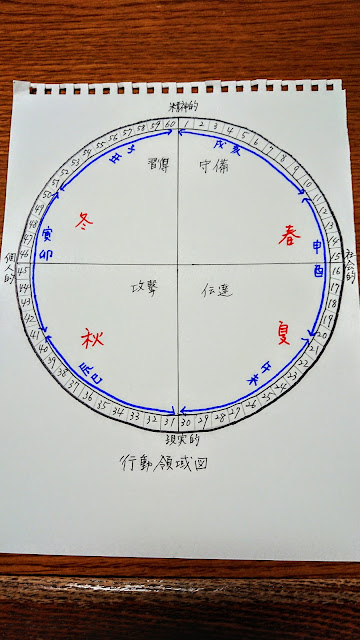 精神的
60 1 2 3 4 5 6 7 8 9 10 11 12 13 14 15 16 17 18 19 20 21 22 23 24 25 26 27 28 29 30 31 32 33 34 35 36 37 38 39 40 41 42 43 44 45 46 47 48 49 50 51 52 53 54 55 56 57 58 59
丑子
戌亥
習得
守備
冬
春
寅卯
申酉
個人的
社会的
攻撃
伝達
秋
夏
辰巳
午未
現実的
行動領域図